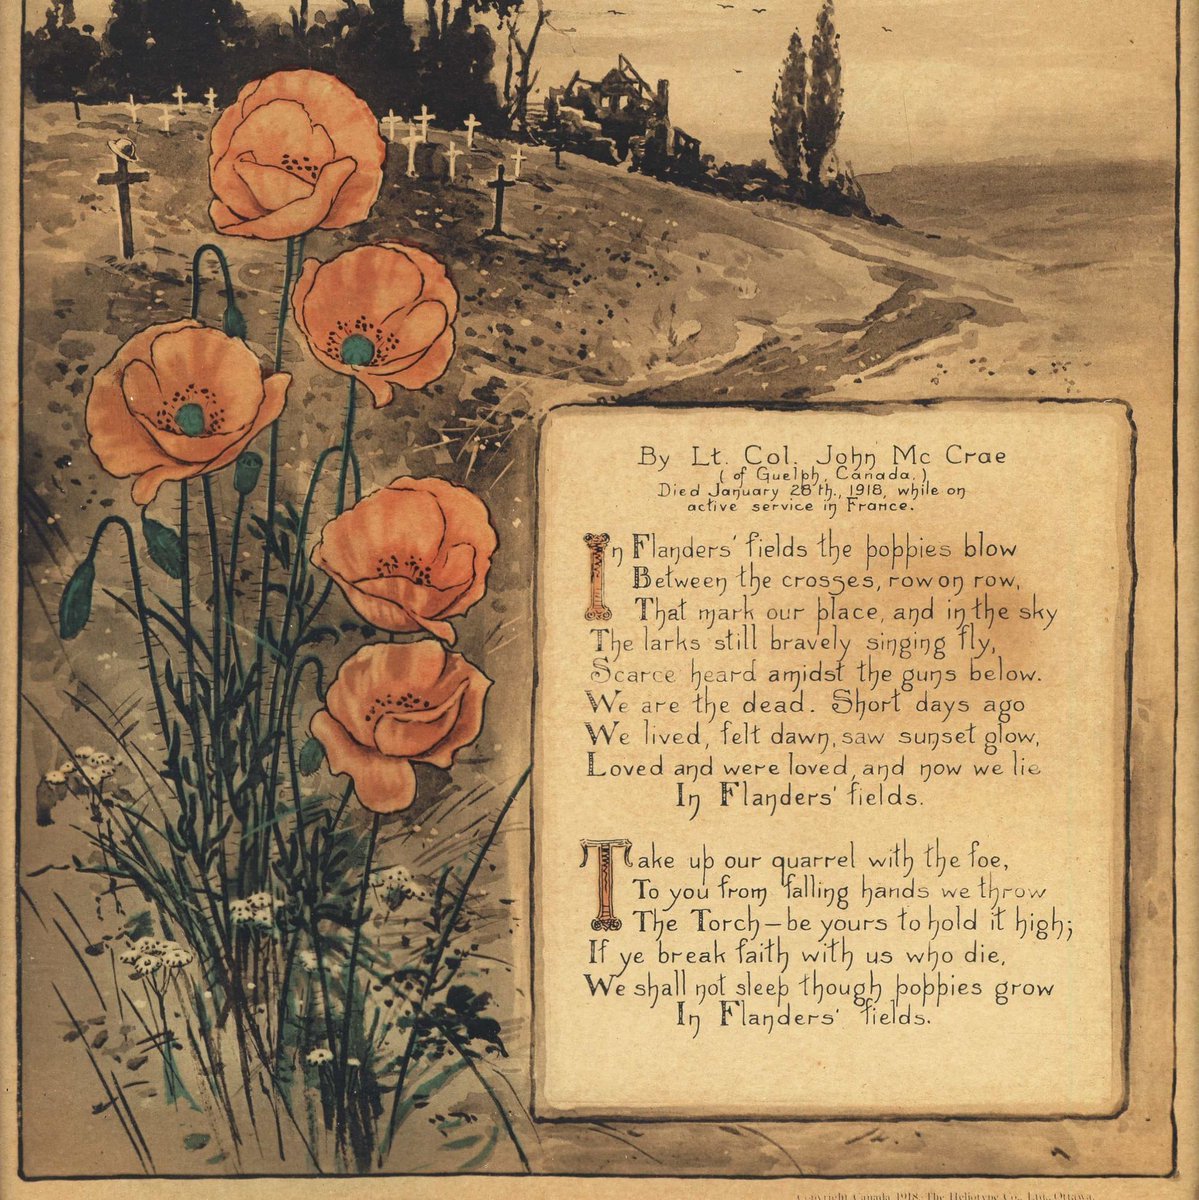 By Lt. Col. John Mc Crae
(of Guelph, Canada.)
Died January 28'th., 1918, while on
active service in France.
In Flanders' fields the poppies blow
Between the crosses, row on row,
That mark our place, and in the sky
The larks still bravely singing fly,
Scarce heard amidst the guns below.
We are the dead. Short days ago
We lived, felt dawn, saw sunset glow,
Loved and were loved, and now we lie
In Flanders' fields.
Take up our quarrel with the foe,
To you from falling hands we throw
The Torch — be yours to hold it high;
If ye break faith with us who die,
We shall not sleep though poppies grow
In Flanders' fields.
Copyright Canada 1918 - The Heliotype Co., Ltd., Ottawa.